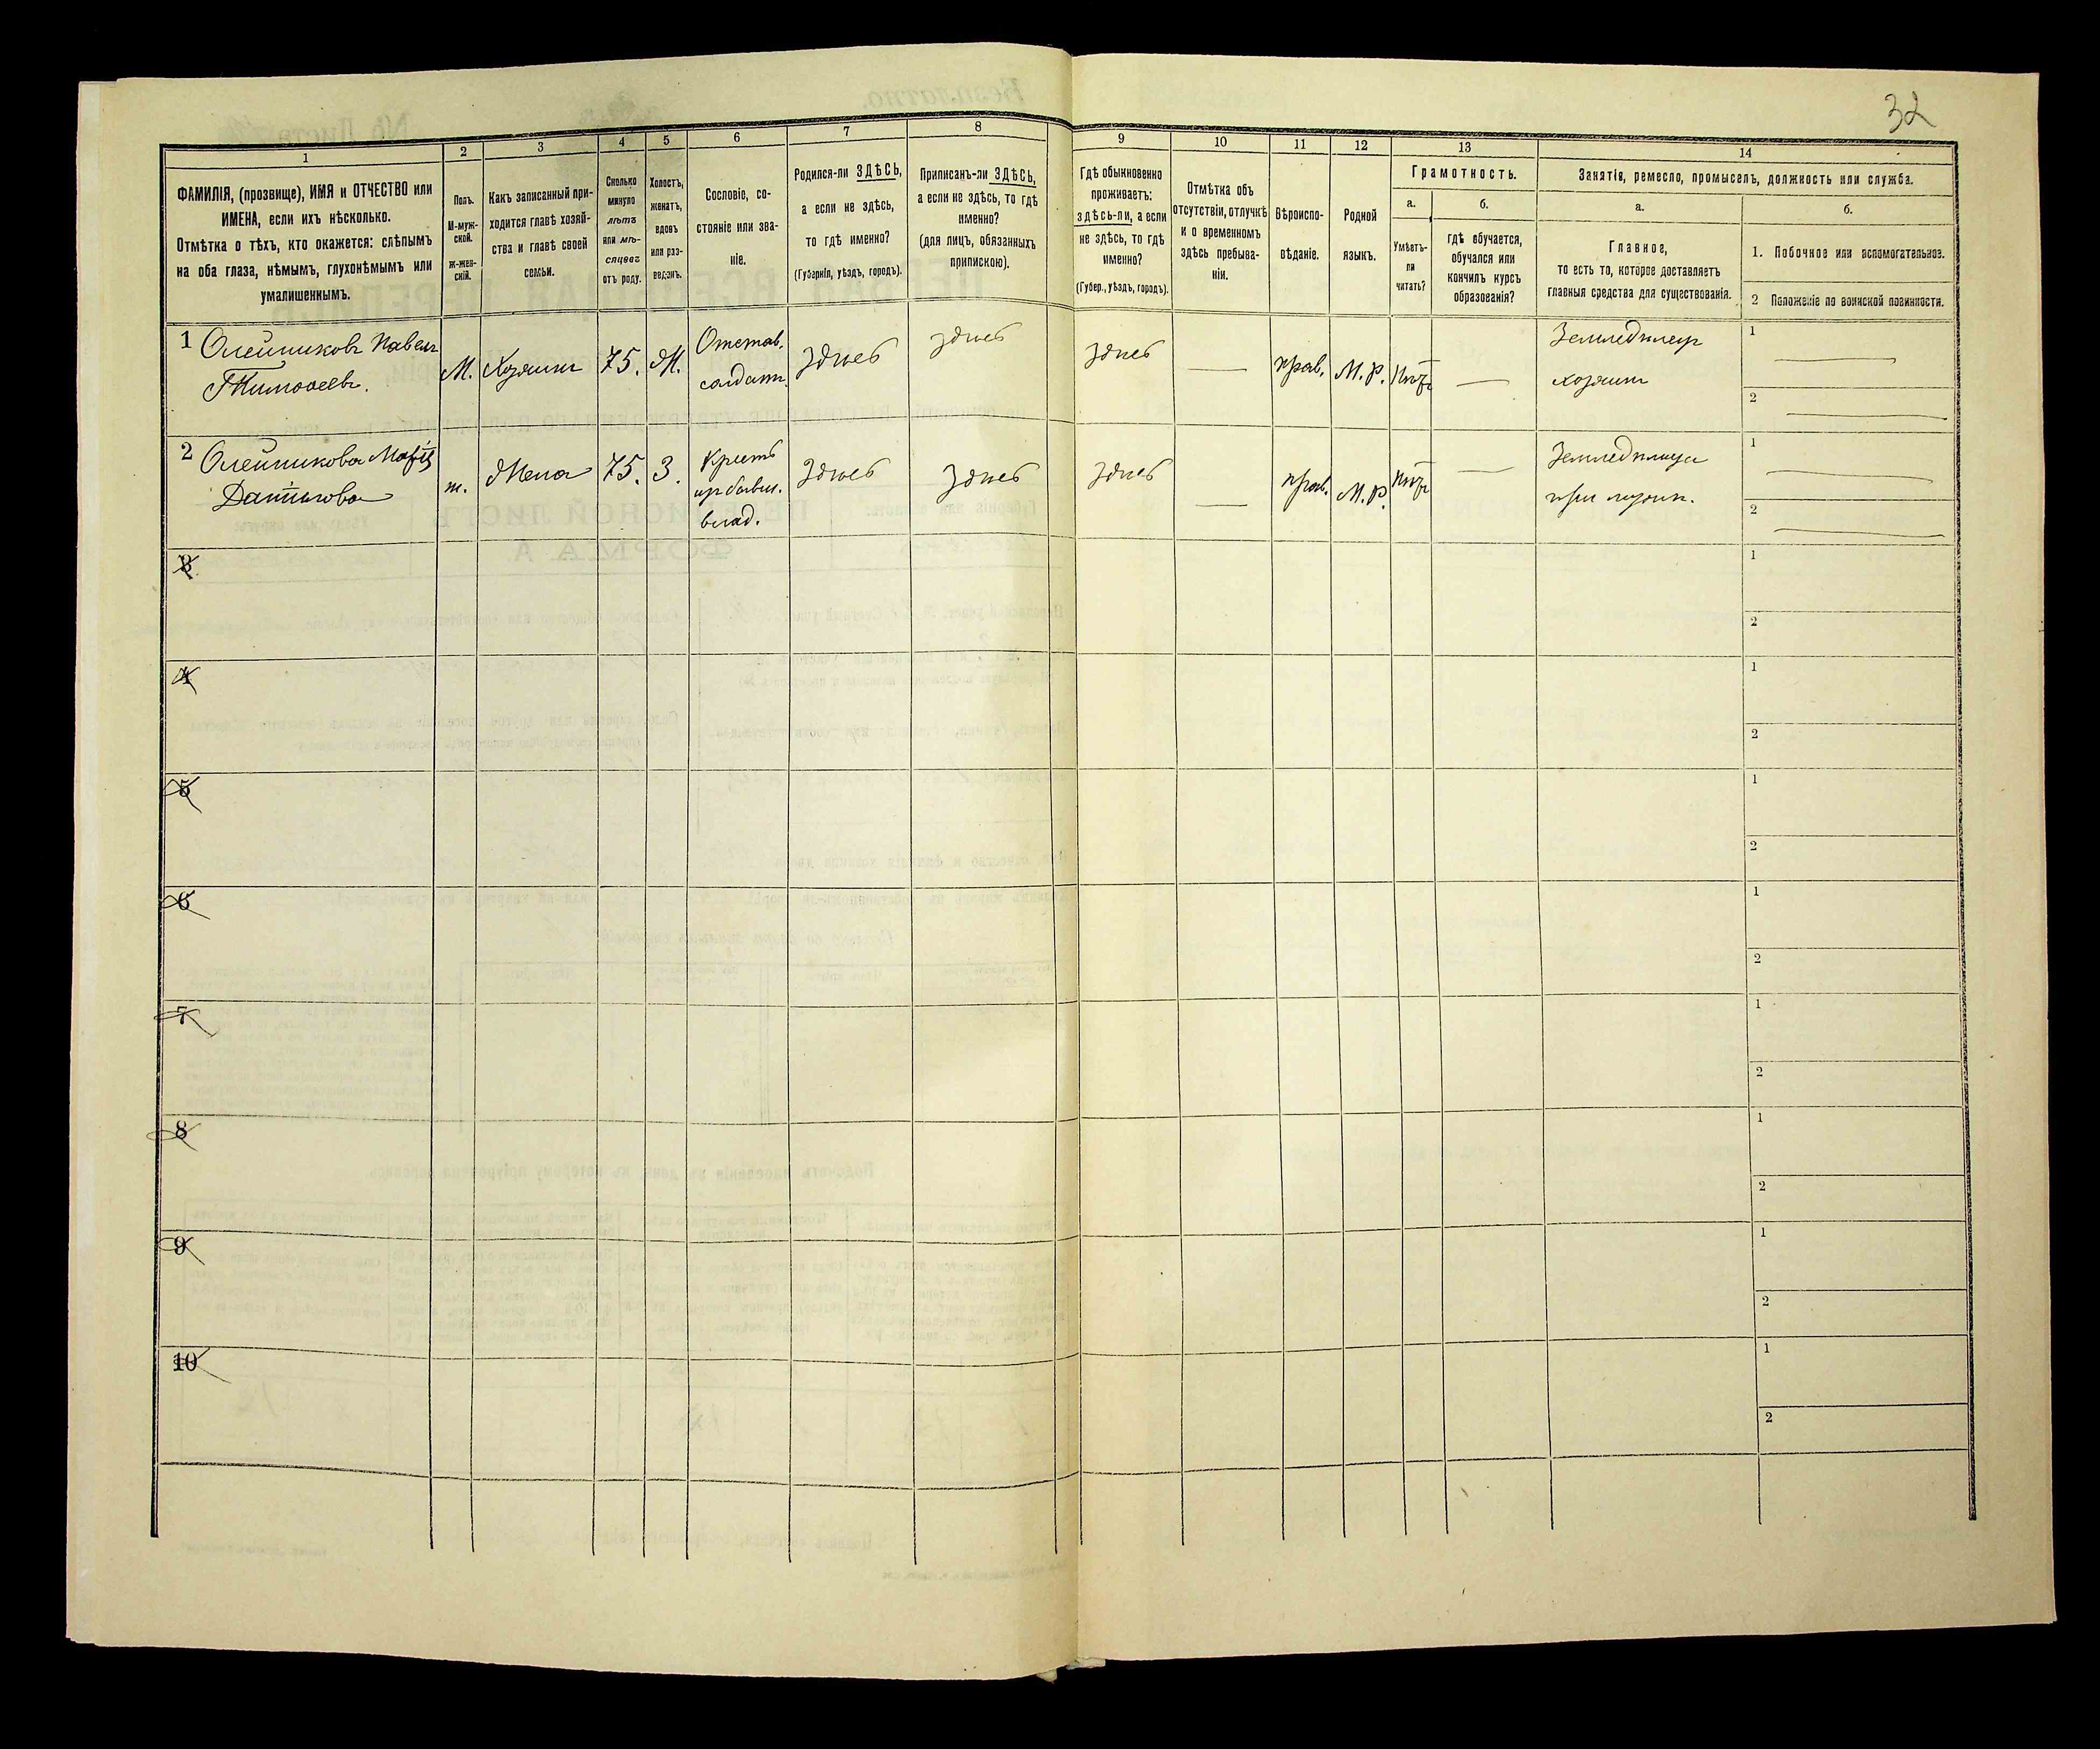 32
1
2
3
4
5
6
7
8
9
10
11
12
13
14
ФАМИЛІЯ, (прозвище), ИМЯ и ОТЧЕСТВО или
ИМЕНА, если ихъ нѣсколько.
Отмѣтка о тѣхъ, кто окажется: слѣпымъ
на оба глаза, нѣмымъ, глухонѣмымъ или
умалишеннымъ.
Полъ.
М-муж-
ской.
ж-жен-
скій.
Какъ записанный при-
ходится главѣ хозяй-
ства и главѣ своей
семьи.
Сколько
минуло
лѣтъ
или мѣ-
сяцевъ
отъ роду.
Холостъ,
женатъ,
вдовъ
или раз-
веденъ.
Сословіе, со-
стояніе или зва-
ніе.
Родился-ли ЗДѢСЬ,
а если не здѣсь,
то гдѣ именно?
(Губернія, уѣздъ, городъ).
Приписанъ-ли ЗДѢСЬ,
а если не здѣсь, то гдѣ
именно?
(для лицъ, обязанныхъ
припискою).
Гдѣ обыкновенно
проживаетъ:
здѣсь-ли, а если
не здѣсь, то гдѣ
именно?
(Губер., уѣздъ, городъ).
Отмѣтка объ
отсутствіи, отлучкѣ
и о временномъ
здѣсь пребыва-
ніи.
Вѣроиспо-
вѣданіе.
Родной
языкъ.
Грамотность.
а.
Умѣетъ-
ли
читать?
б.
гдѣ обучается,
обучался или
кончилъ курсъ
образованія?
Занятія, ремесло, промыселъ, должность или служба.
а.
Главное,
то есть то, которое доставляетъ
главныя средства для существованія.
б.
1. Побочное или вспомогательное.
2 Положеніе по воинской повинности.
1 Олейниковъ Павелъ
Тимофеевъ.
М.
Хозяинъ
75.
Ж.
Отстав.
солдатъ.
здѣсь
здѣсь
здѣсь
прав.
М.Р.
Нѣтъ
Земледѣлецъ
хозяинъ
1
2
2 Олейникова Марія
Данилова
ж.
Жена
75.
З.
Крест.
изъ бывш.
влад.
здѣсь
здѣсь
здѣсь
прав.
М.Р.
Нѣтъ
при
1
2
3
1
2
4
1
2
5
1
2
6
1
2
7
1
2
8
1
2
9
1
2
10
1
2